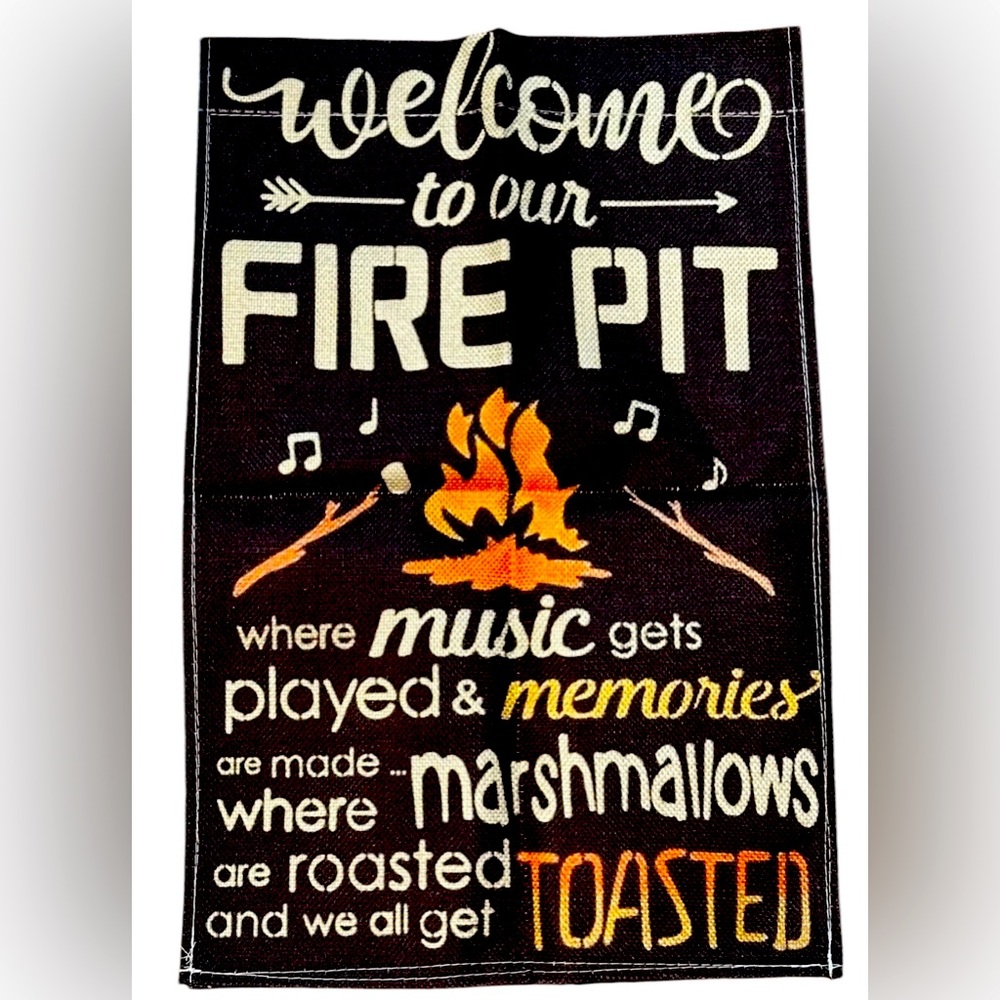 welcome
to our
FIRE PIT
where music gets
played & memories
are made ... marshmallows
where
are roasted TOASTED
and we all get